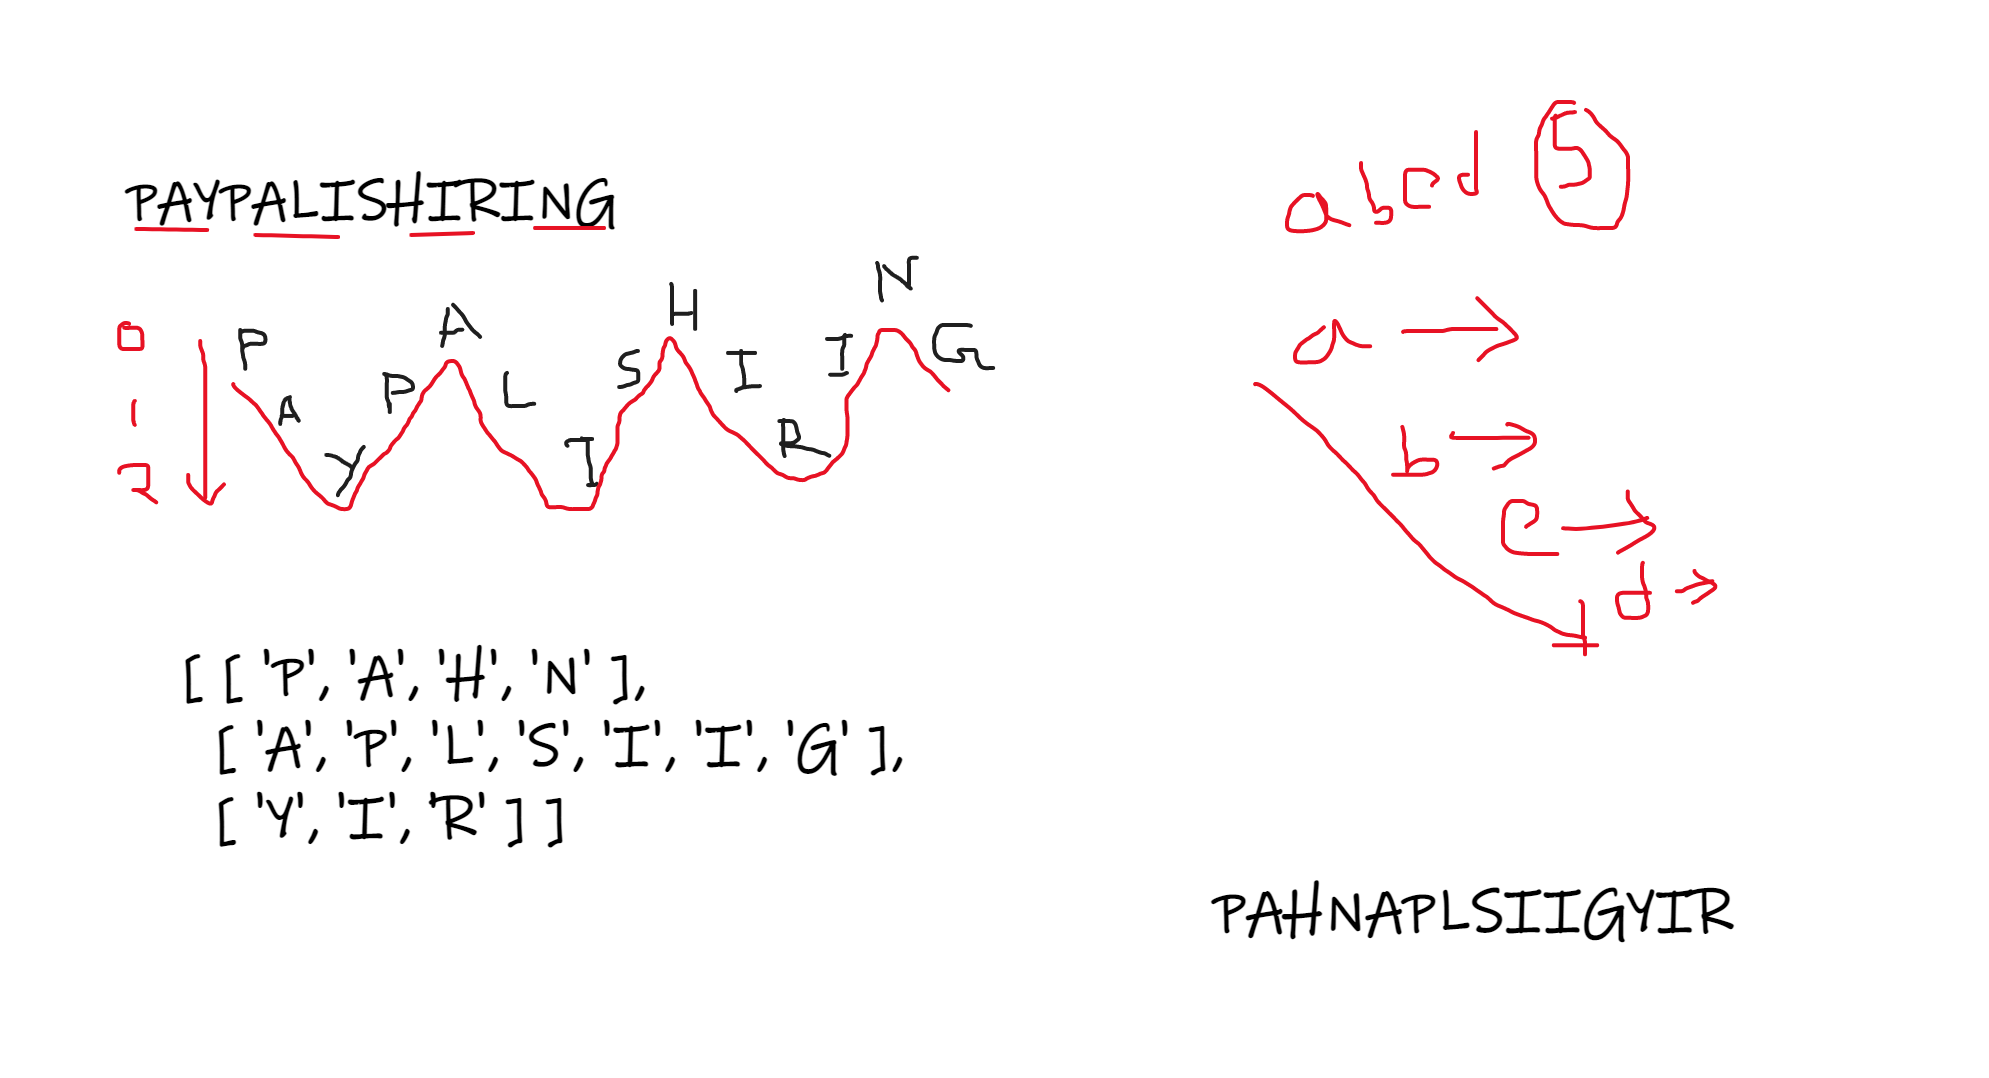 PAYPALISHIRING
0
1
2
P A Y P A L I S H I R I N G
[ [ 'P', 'A', 'H', 'N' ],
[ 'A', 'P', 'L', 'S', 'I', 'I', 'G' ],
[ 'Y', 'I', 'R' ] ]
abcd 5
a →
b →
c →
d →
PAHNAPLSIIGYIR